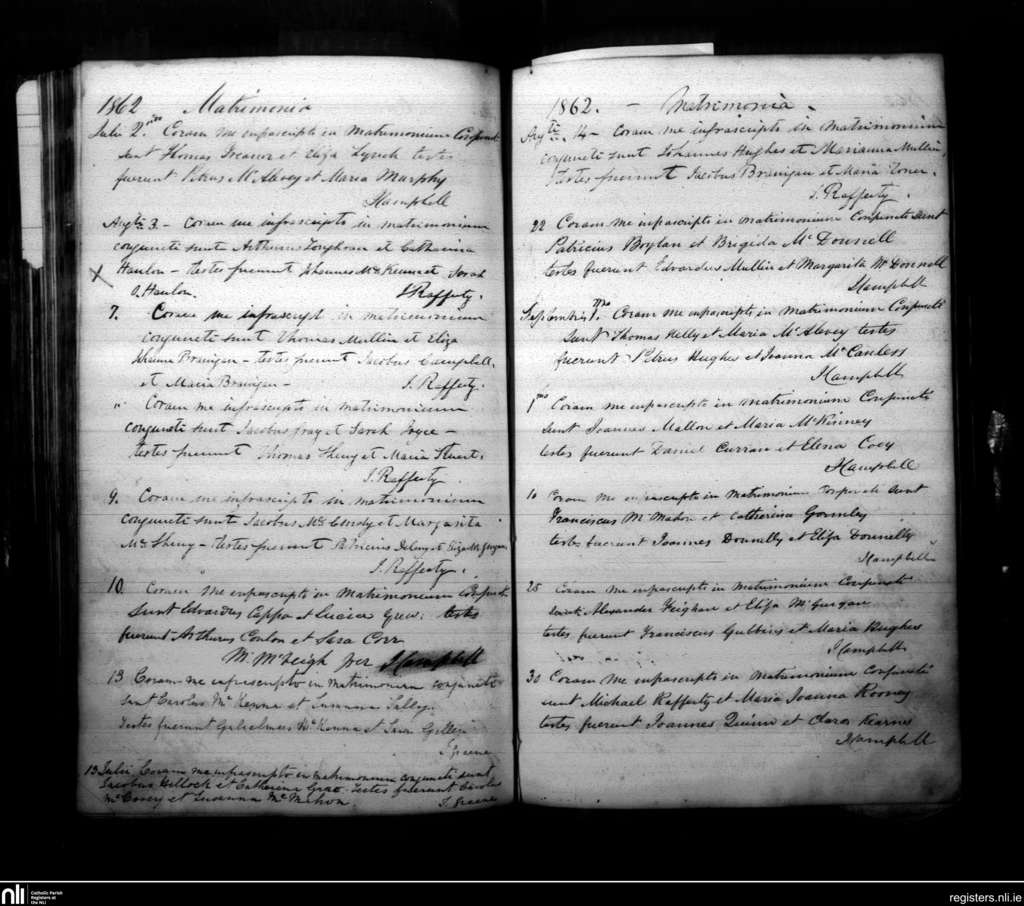 1862 Matrimonia
Julii 2. Coram me infrascripto in Matrimonium Conjuncti
sunt Thomas Treanor et Eliza Lynch testes
fuerunt Petrus McAlevey et Maria Murphy
J Campbell
Augti 3. - Coram me infrascripto in matrimonium
conjuncti sunt Arthurus et Catharina
Hanlon - testes fuerunt Johannes McKenna et Sarah
O.Hanlon. J Rafferty.
7. Coram me infrascript in matrimonium
conjuncti sunt Thomas Mullin et Eliza
Branigan - testes fuerunt Jacobus Campbell
et Maria Branigan - J. Rafferty.
" Coram me infrascripto in matrimonium
conjuncti sunt Jacobus et Sarah Joyce -
testes fuerunt Thomas et Maria Stuert.
J. Rafferty.
9. Coram me infrascripto in matrimonium
conjuncti sunt Jacobus et Margarita
- testes fuerunt Patricius et Eliza
J. Rafferty.
10. Coram me infrascripto in Matrimonium Conjuncti
Sunt Edvardus Cappa et Grew. testes
fuerunt Arthurus Conlon et Sara Corr
J Campbell
13 Coram me infrascripto in matrimonium conjuncti
sunt Carolus McKenna et Susanna Tally.
Testes fuerunt Gulielmus McKenna et Sara
J Greene
13 Julii Coram me infrascripto in matrimonium conjuncti sunt
Jacobus et Catharina Testes fuerunt Carolus
et Susanna McMahon. J. Greene
1862. - Matrimonia.
Augti 14 - Coram me infrascripto in matrimonium
conjuncti sunt Johannes Hughes et Marianna Mullin,
testes fuerunt Jacobus Branigan et Maria Toner.
J. Rafferty.
22 Coram me infrascripto in matrimonium Conjuncti Sunt
Patricius Boylan et Brigida McDonnell
testes fuerunt Edvardus Mullin et Margarita McDonnell
J Campbell
Septembris 1mo. Coram me infrascripto in Matrimonium Conjuncti
Sunt Thomas Kelly et Maria McAlevey testes
fuerunt Petrus Hughes et Joanna McCanless
J Campbell
1mo Coram me infrascripto in matrimonium Conjuncti
sunt Joannes Mallon et Maria McKinney
testes fuerunt Daniel Curran et Elena Coey
J Campbell
10 Coram me infrascripto in Matrimonium Conjuncti Sunt
Franciscus McMahon et Catherina Gormley
testes fuerunt Joannes Donnelly et Eliza Donnelly
J Campbell
25 Coram me infrascripto in matrimonium Conjuncti
sunt Alexander Feighan et Eliza McGurgan
testes fuerunt Franciscus Gubbins et Maria Hughes
J Campbell
30 Coram me infrascripto in Matrimonium Conjuncti
sunt Michael Rafferty et Maria Joanna Rooney
testes fuerunt Joannes Quinn et Clara Kearns
J Campbell
nli
Catholic Parish
Registers at
the NLI
registers.nli.ie